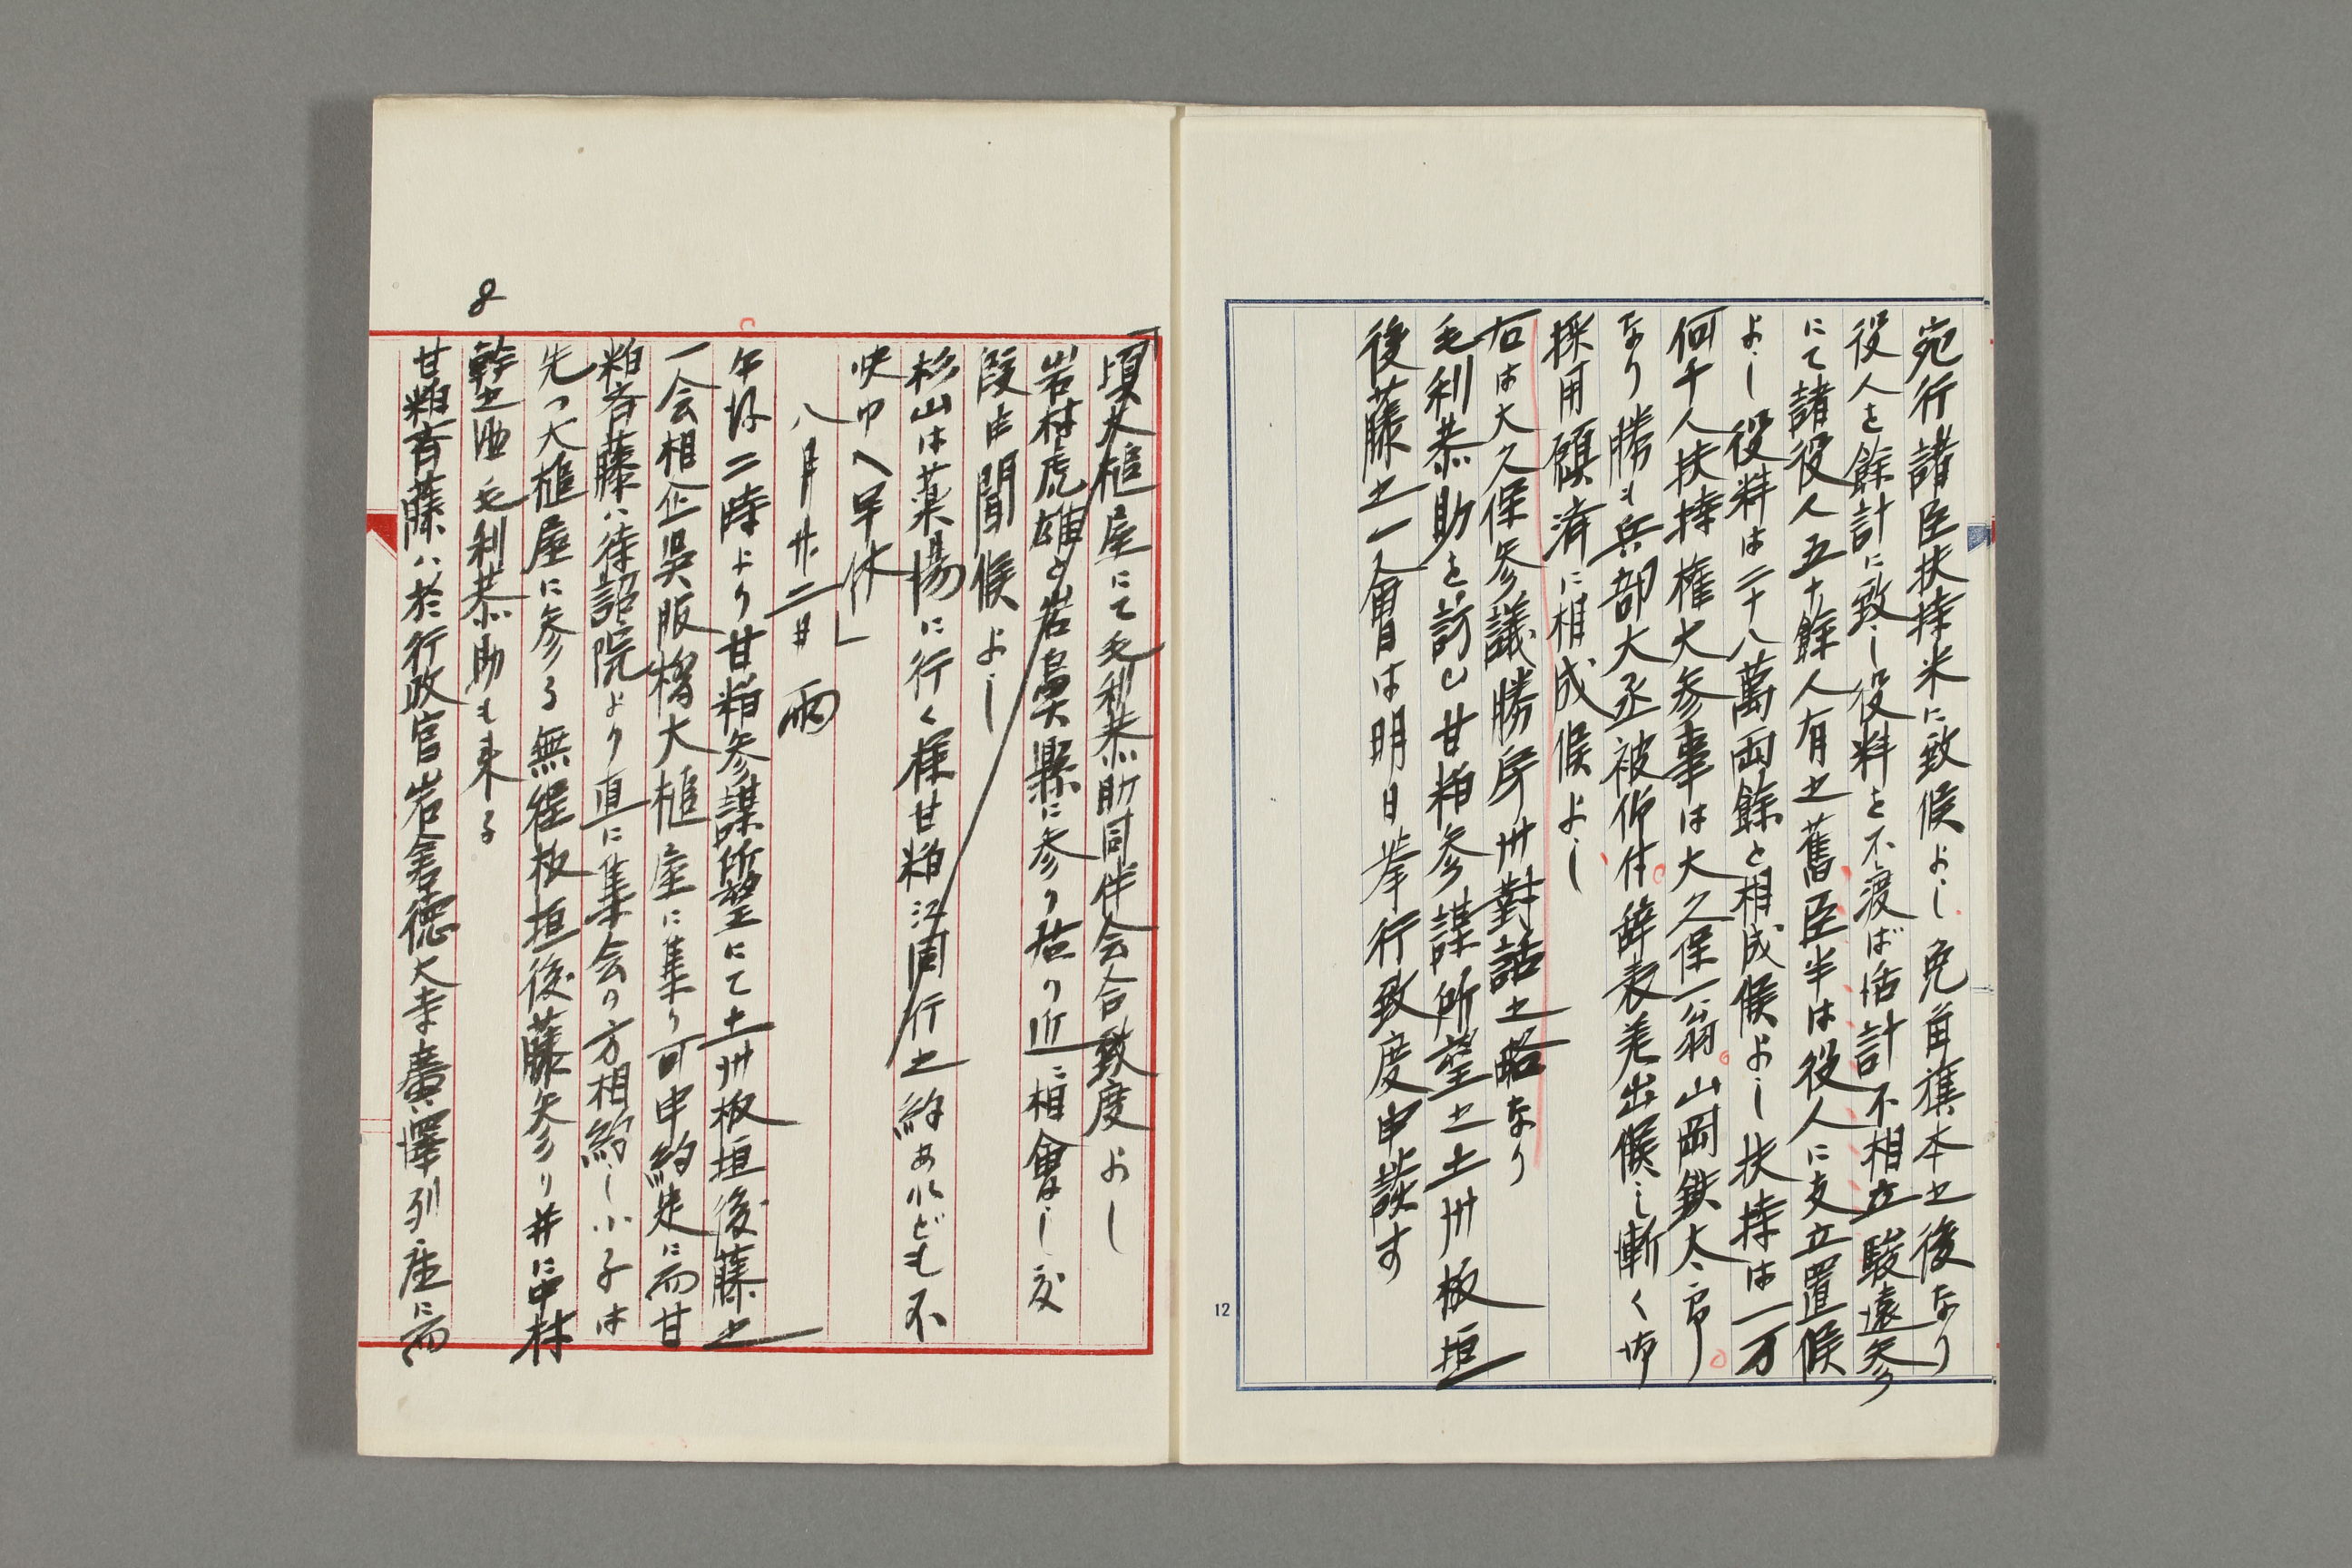 宛行諸臣扶持米に致候よし免角旗本之後なり
役人を餘計に致し役料を不渡ば活計不相立駿遠参
にて諸役人五十餘人有之舊臣半は役人に支立置候
よし役料は二十八萬両餘と相成候よし扶持は一万
何千人扶持権大参事は大久保一翁山岡鉄太郎
なり勝も兵部大丞被仰付辞表差出候し漸く御
採用願済に相成候よし
右は大久保参議勝房州對話之略なり
毛利恭助を訪ひ甘粕参謀所望之土州板垣
後藤之一会は明日挙行致度申談す
12
頃大槌屋にて毛利恭助同伴会合致度よし
岩村虎雄と岩鼻縣に参り居り近に相會し度
段申聞候よし
杉山は薬湯に行く様甘粕江同行之約あれども不
快ゆへ早休」
八月廿二日 雨
午好二時より甘粕参謀所望にて土州板垣後藤之
一会相企呉服橋大槌屋に集り可申約定に而甘
粕斉藤ハ待詔院より直に集会の方相約し小子は
先つ大槌屋に参る無程板垣後藤参り并に中村
8
幹之進毛利恭助も来る
甘粕斉藤ハ於行政官岩倉徳大寺廣澤列座に而